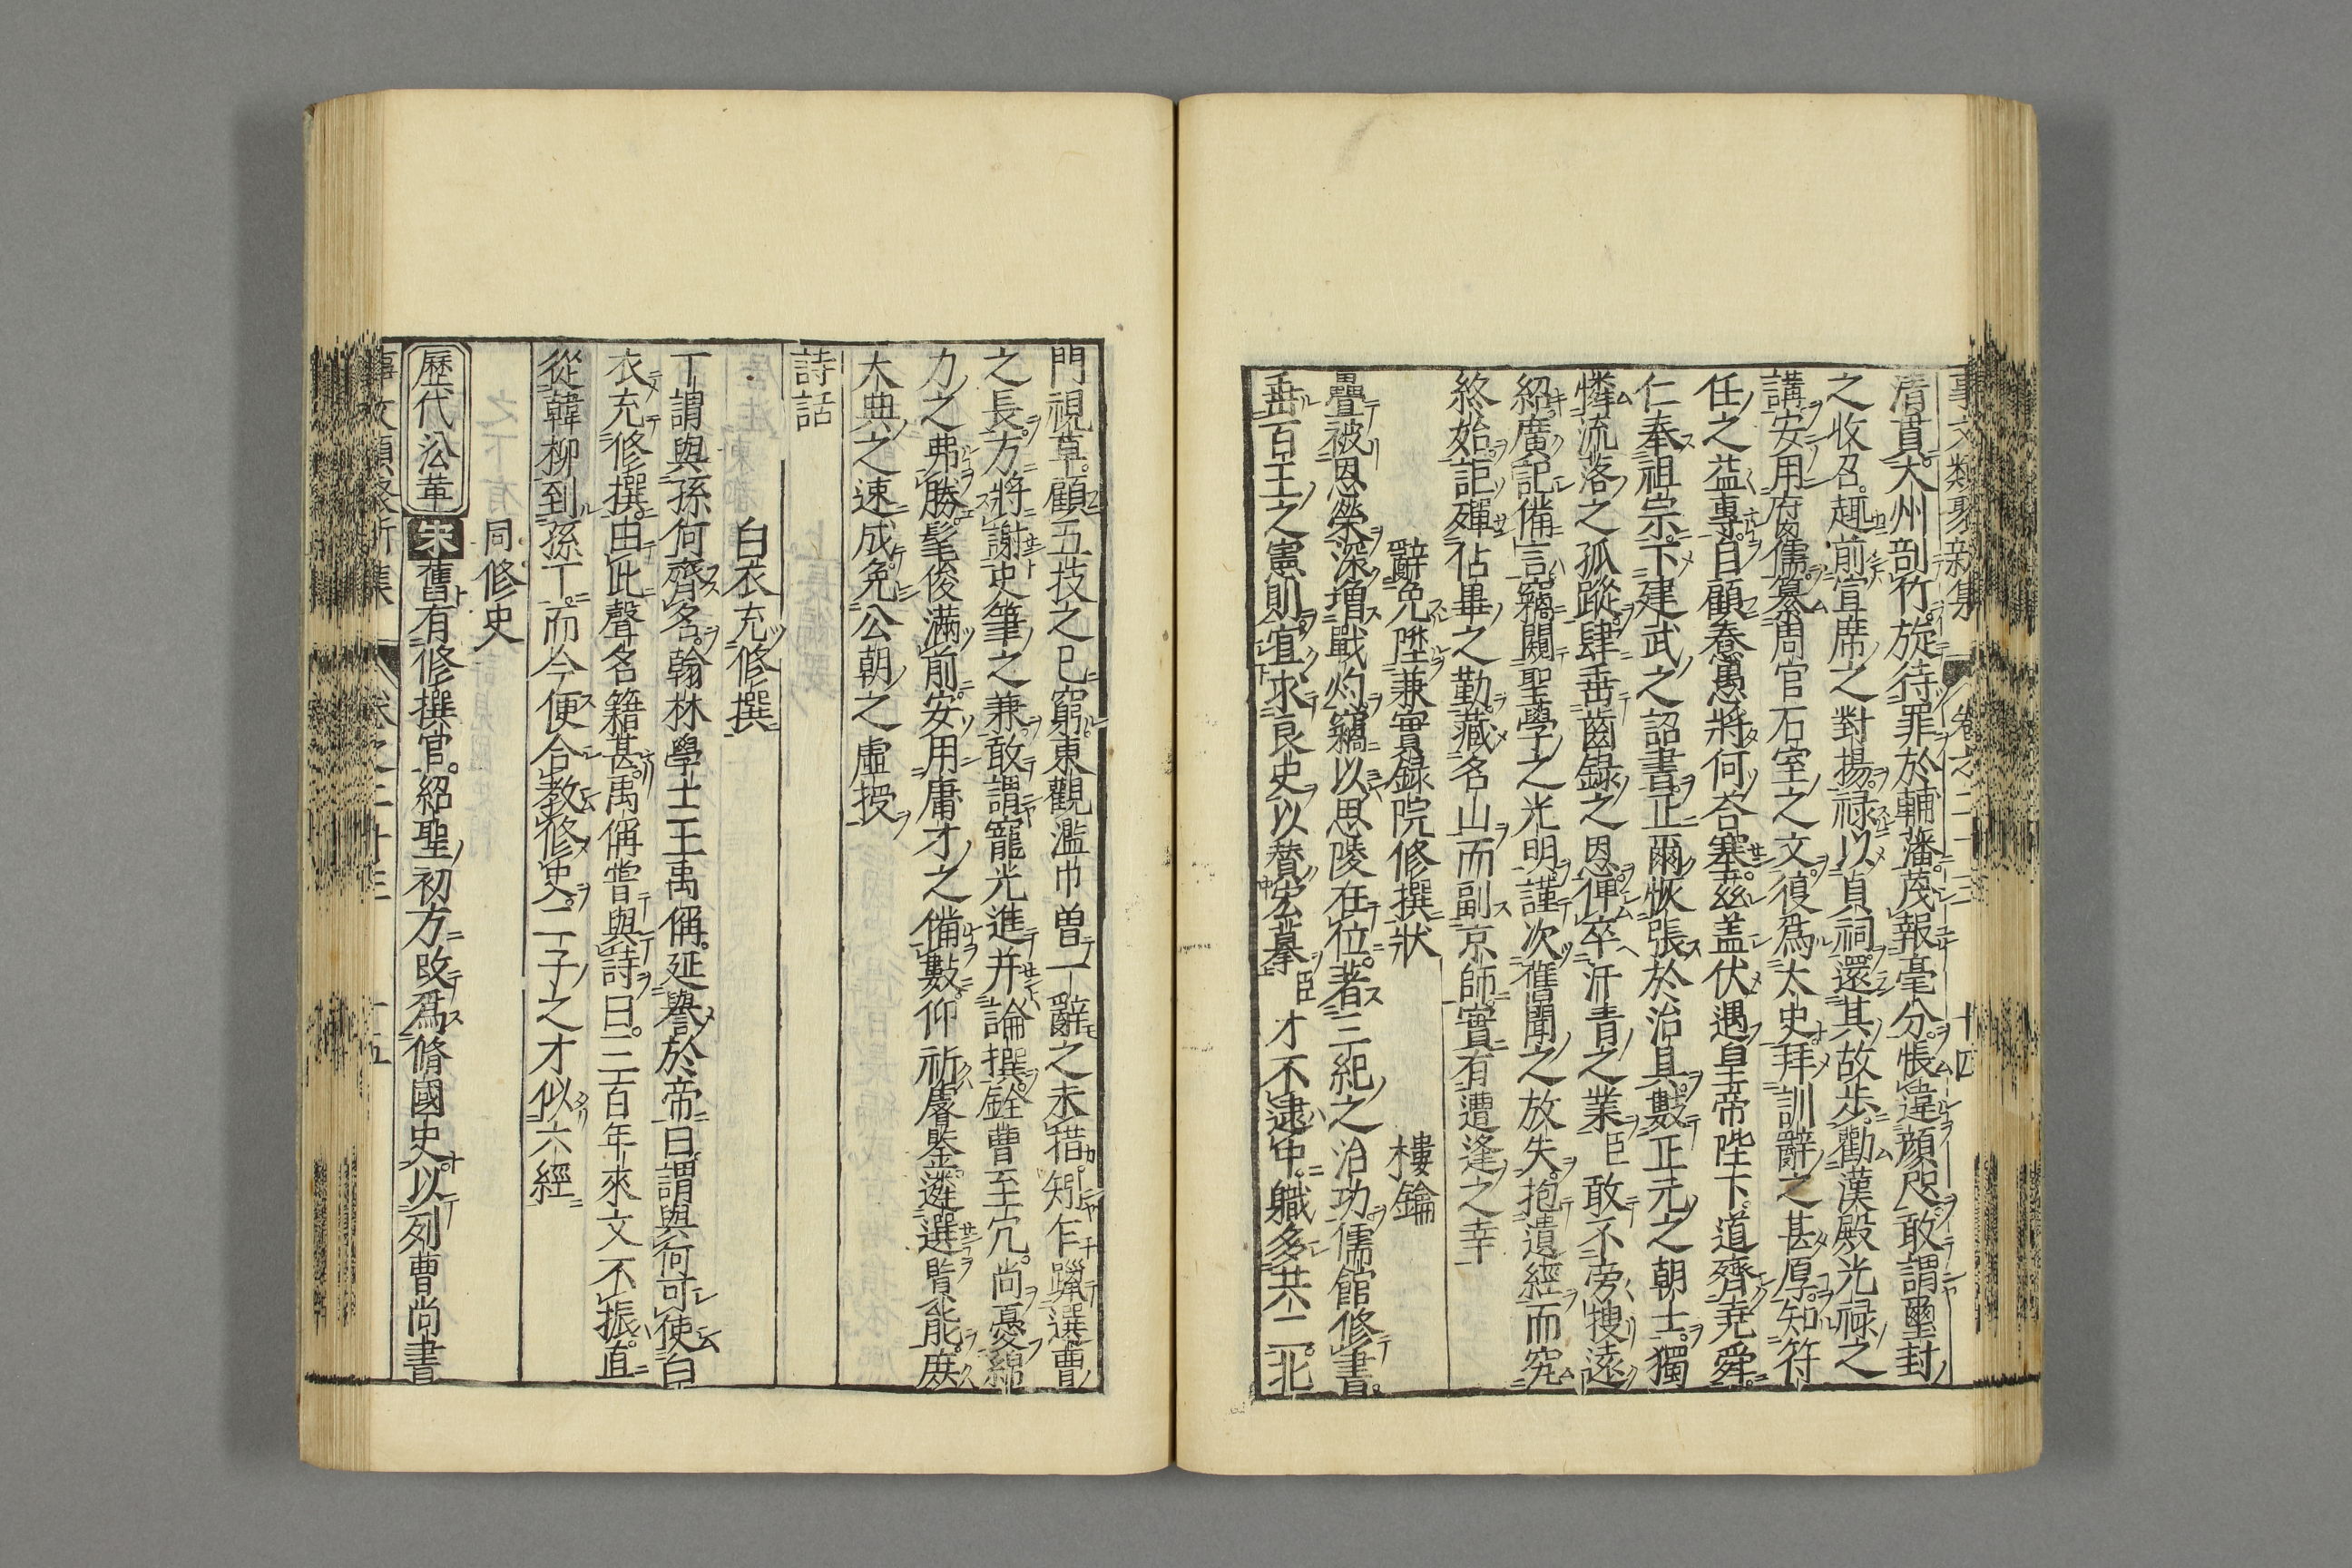 事文類聚新集 卷之二十三 十四
清貫大州剖竹旋待罪於輔藩蔑報毫分悵違顔咫敢謂璽封
之收召趣前宣席之對揚禄以貞祠還其故步勸漢殿光禄之
講安用腐儒纂周官石室之文復為太史拜訓辭之甚厚知符
任之益專自顧惷愚將何荅塞茲盖伏遇皇帝陛下道齊堯舜
仁奉祖宗下建武之詔書正爾恢張於治具數正元之朝士獨
憐流落之孤蹤肆垂齒錄之恩俾卒汗青之業臣敢不旁搜遠
紹廣記備言竊闚聖學之光明謹次舊聞之放失抱遺經而究
終始詎殫佔畢之勤藏名山而副京師實有遭逢之幸
辭免陞兼實錄院修撰狀 樓鑰
疊被恩榮深增戰灼竊以思陵在位著三紀之治功儒館修書
垂百王之憲則宜求良史以賛宏摹臣才不逮中職多共二北
門視草顧五技之已窮東觀濫巾曾一辭之未措矧乍躐選曹
之長方將謝史筆之兼敢謂寵光進并論撰銓曹至冗尚憂綿
力之弗勝髦俊滿前安用庸才之備數仰祈睿鑒遴選賢能庶
大典之速成免公朝之虛授
詩話
白衣充修撰
丁謂與孫何齊名翰林學士王禹偁延譽於帝曰謂與何可使白
衣充修撰由此聲名籍甚禹偁嘗與詩曰三百年來文不振直
從韓柳到孫丁而今便合教修史二子之才似六經
同修史
歷代沿革 宋 舊有修撰官紹聖初方改爲脩國史以列曹尚書
事文類聚新集 卷之二十三 十五